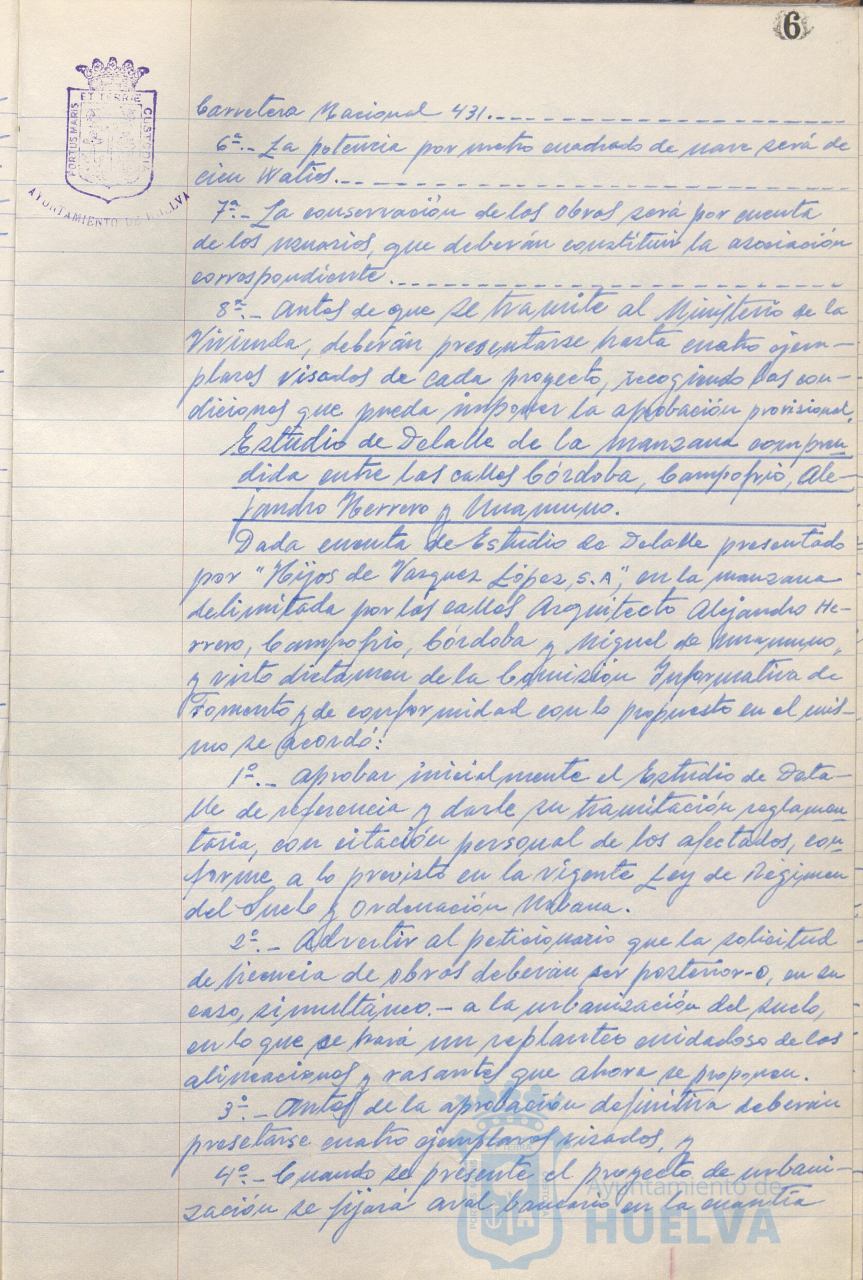 6
PORTUS MARIS
ET TERRÆ
CUSTODIA
AYUNTAMIENTO DE HUELVA
Carretera Nacional 431.
6ª.- La potencia por metro cuadrado de nave será de
cien Watios.
7ª.- La conservación de las obras será por cuenta
de los usuarios, que deberán constituir la asociación
correspondiente.
8ª.- Antes de que se tramite al Ministerio de la
Vivienda, deberán presentarse hasta cuatro ejem-
plares visados de cada proyecto, recogiendo las con-
diciones que pueda imponer la aprobación provisional.
Estudio de Detalle de la manzana compren-
dida entre las calles Córdoba, Campofrio, Ale-
jandro Herrero y Unamuno.
Dada cuenta de Estudio de Detalle presentado
por "Hijos de Vazquez López, S.A", en la manzana
delimitada por las calles Arquitecto Alejandro He-
rrero, Campofrio, Córdoba y Miguel de Unamuno,
y visto dictamen de la Comisión Informativa de
Fomento y de conformidad con lo propuesto en el mis-
mo se acordó:
1º.- Aprobar inicialmente el Estudio de Deta-
lle de referencia y darle su tramitación reglamen-
taria, con citación personal de los afectados, con-
forme a lo previsto en la vigente Ley de Régimen
del Suelo y Ordenación Urbana.
2º.- Advertir al peticionario que la solicitud
de licencia de obras deberán ser posterior-o, en su
caso, simultáneo.- a la urbanización del suelo,
en lo que se hará un replanteo cuidadoso de las
alineaciones y rasantes que ahora se proponen.
3º.- Antes de la aprobación definitiva deberán
presetarse cuatro ejemplares visados, y
4º.- Cuando se presente el proyecto de urbani-
zación se fijará aval bancario en la cuantía
Ayuntamiento de
HUELVA